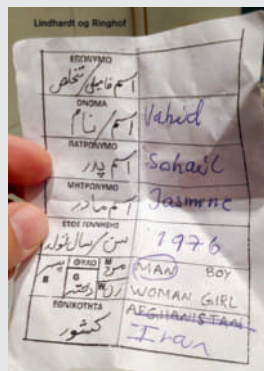 Lindhardt og Ringhof
ΕΠΩΝΥΜΟ
اسم فامیلی/تخلص
ΟΝΟΜΑ
اسم/نام Vahid
ΠΑΤΡΩΝΥΜΟ
اسم پدر Sohail
ΜΗΤΡΩΝΥΜΟ
اسم مادر Jasmine
ΕΤΟΣ ΓΕΝΝΗΣΗΣ
سن/سال تولد 1976
پسر ΦΥΛΟ M مرد MAN BOY
B G دختر W زن WOMAN GIRL
ΕΘΝΙΚΟΤΗΤΑ AFGHANISTAN
کشور Iran